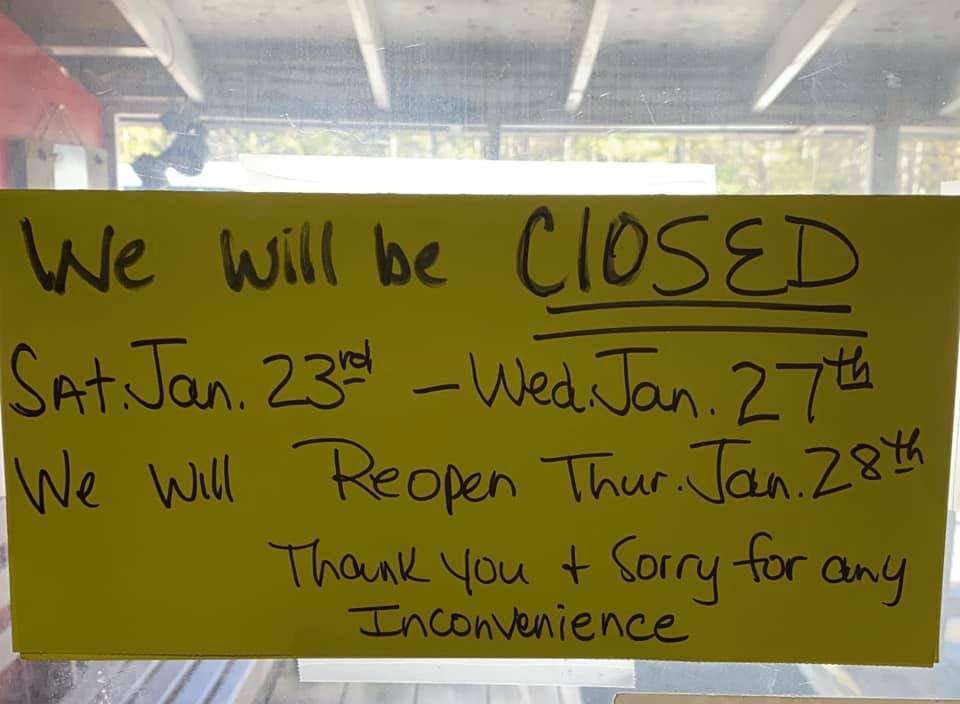 We will be ClOSED
SAt. Jan. 23rd - Wed. Jan. 27th
We Will Reopen Thur. Jan. 28th
Thank you + Sorry for any
Inconvenience